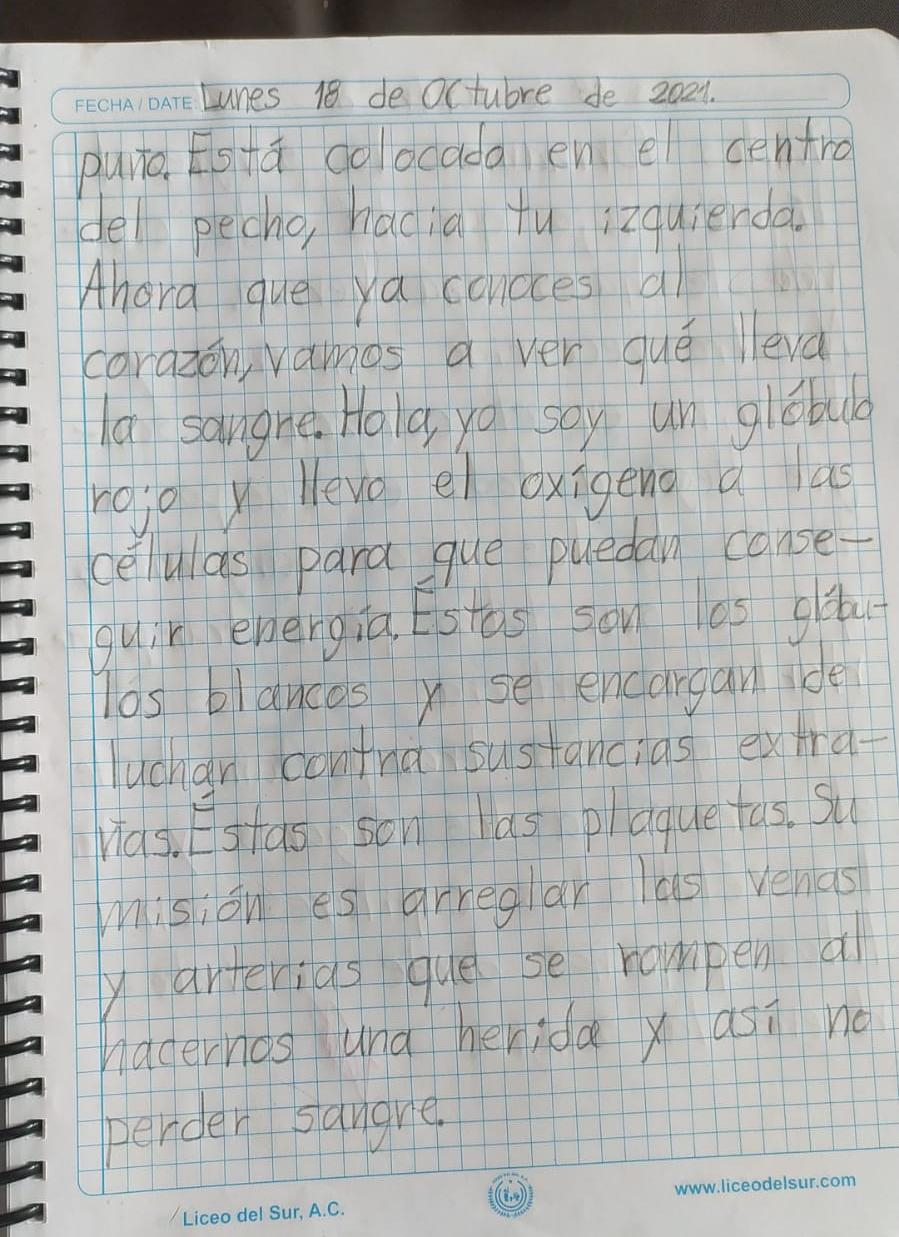 FECHA / DATE: Lunes 18 de Octubre de 2021.
puño. Está colocado en el centro
del pecho, hacia tu izquierda.
Ahora que ya conoces al
corazón, vamos a ver qué lleva
la sangre. Hola, yo soy un glóbulo
rojo y llevo el oxígeno a las
células para que puedan conse-
guir energía. Éstos son los glóbu-
los blancos y se encargan de
luchar contra sustancias extra-
ñas. Éstas son las plaquetas. Su
misión es arreglar las venas
y arterias que se rompen al
hacernos una herida y así no
perder sangre.
Liceo del Sur, A.C.
www.liceodelsur.com